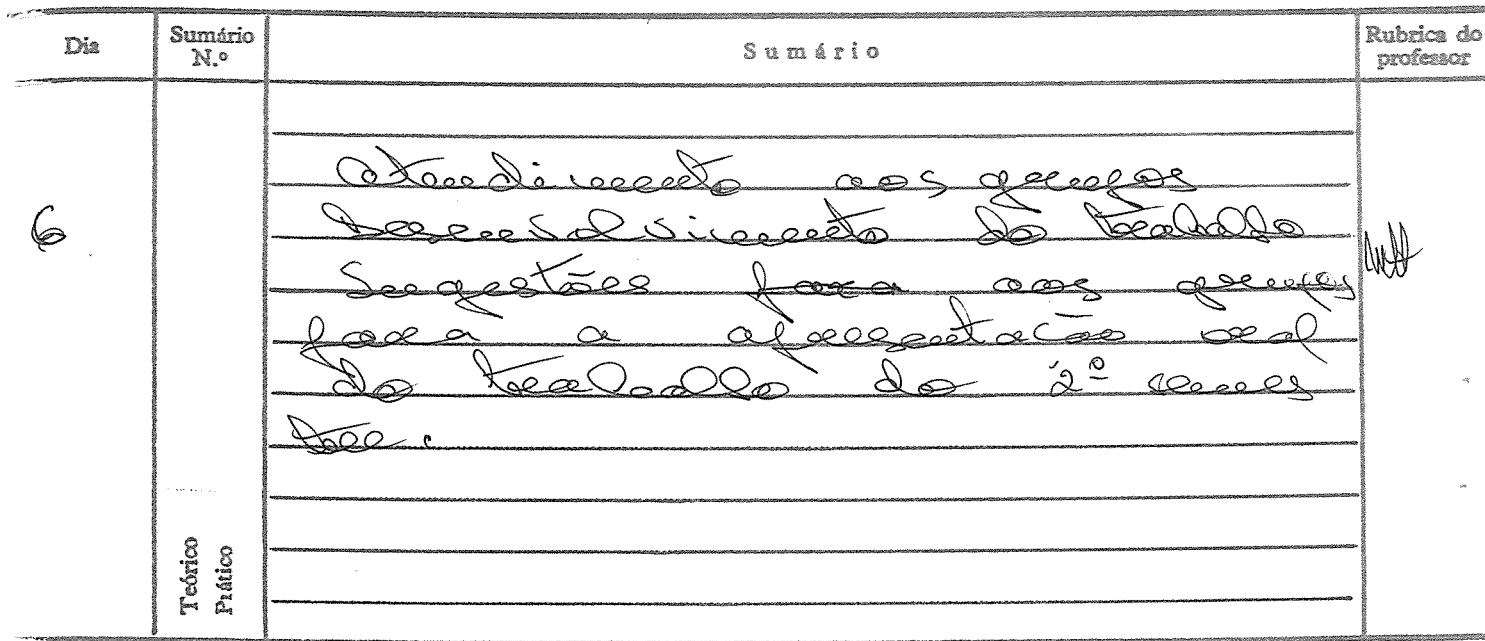 Dia
Sumário N.º
Sumário
Rubrica do professor
6
Atendimento aos grupos
Desenvolvimento do trabalho
Sugestões para aos grupos
para a apresentação oral
do trabalho do 2º semes
tre.
Teórico
Prático